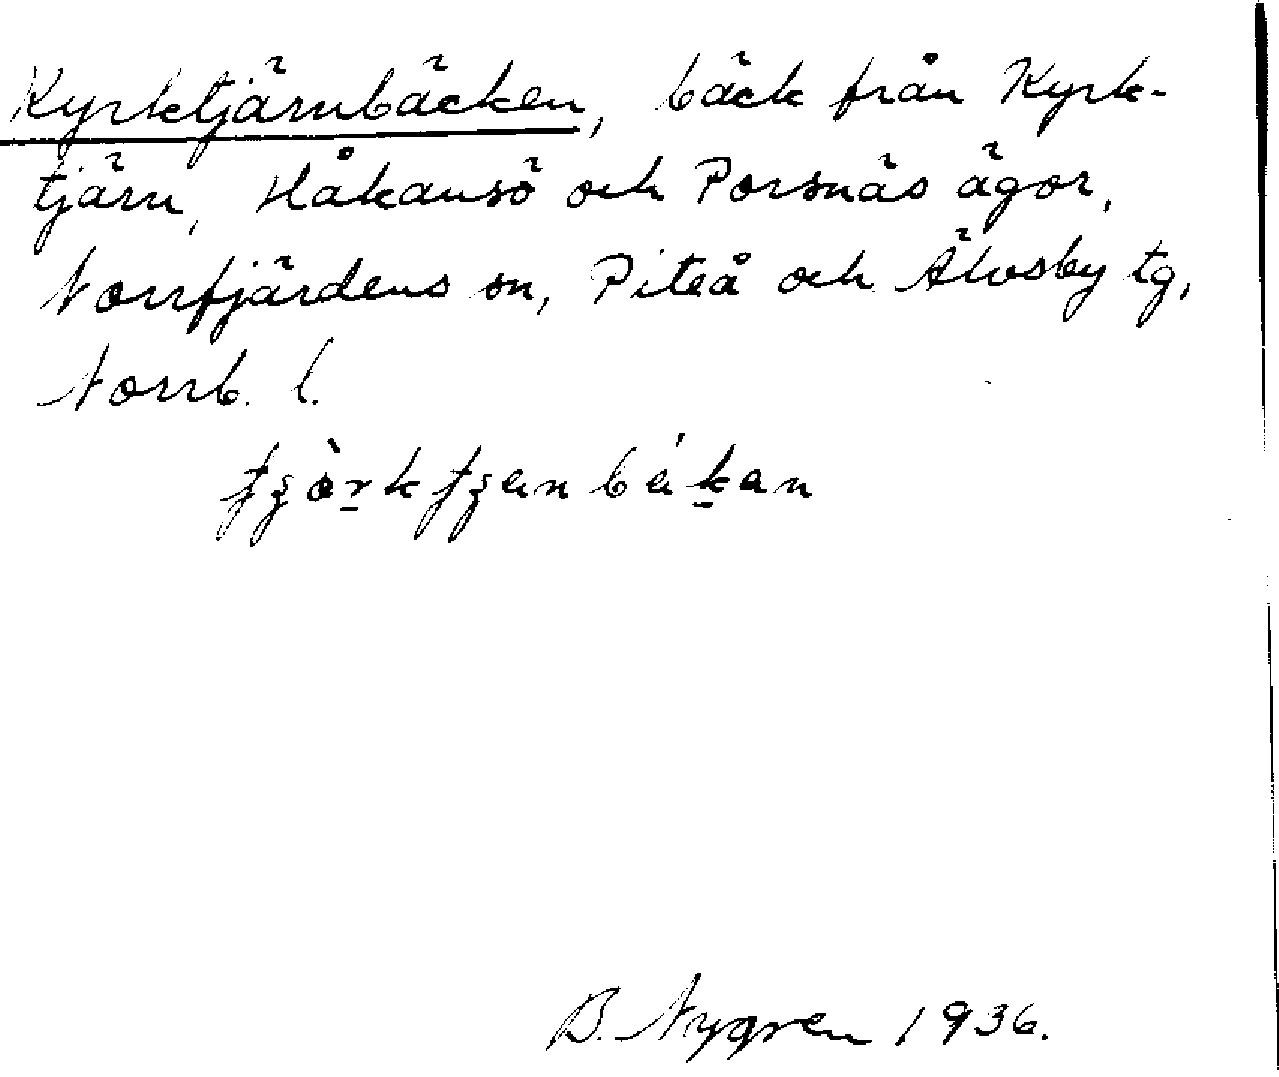 Kyrktjärnbäcken, bäck från Kyrk-
tjärn, Håkansö och Porsnäs ägor,
Norrfjärdens sn, Piteå och Älvsby tg,
Norrb. l.
B. Nygren 1936.